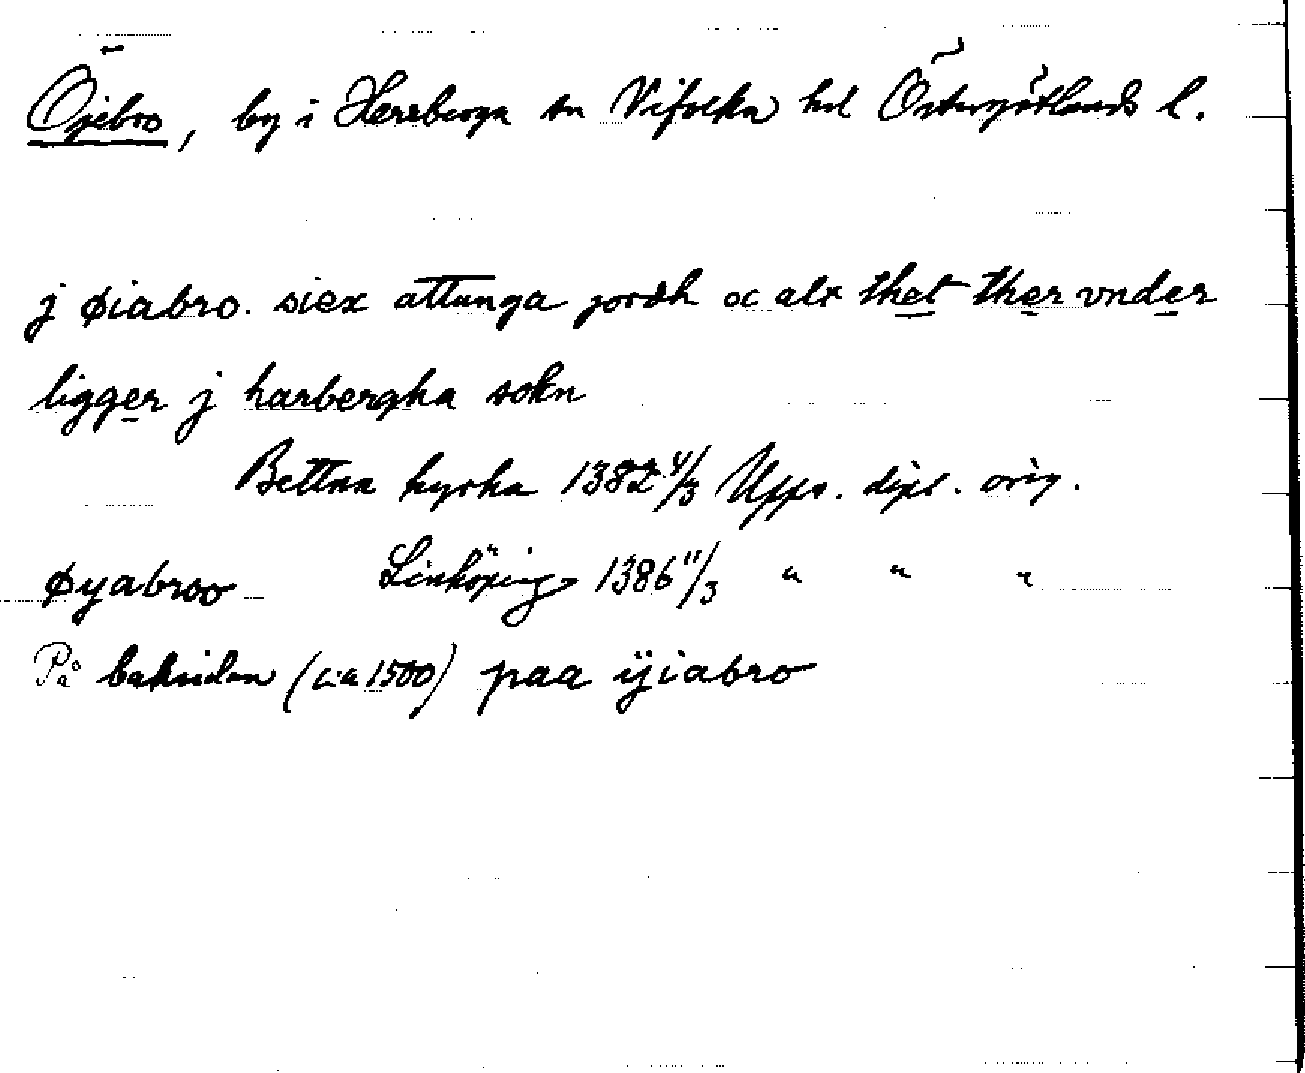 Öjebro, by i Herrberga sn Vifolka hd Östergötlands l.
j øiabro. siex attunga jordh oc alt thet ther vnder
ligger j harbergha sokn
Bettna kyrka 1382 4/3 Upps. dipl. orig.
øyabroo Linköping 1386 11/3 " " "
På baksidan (c:a 1500) paa ÿiabro